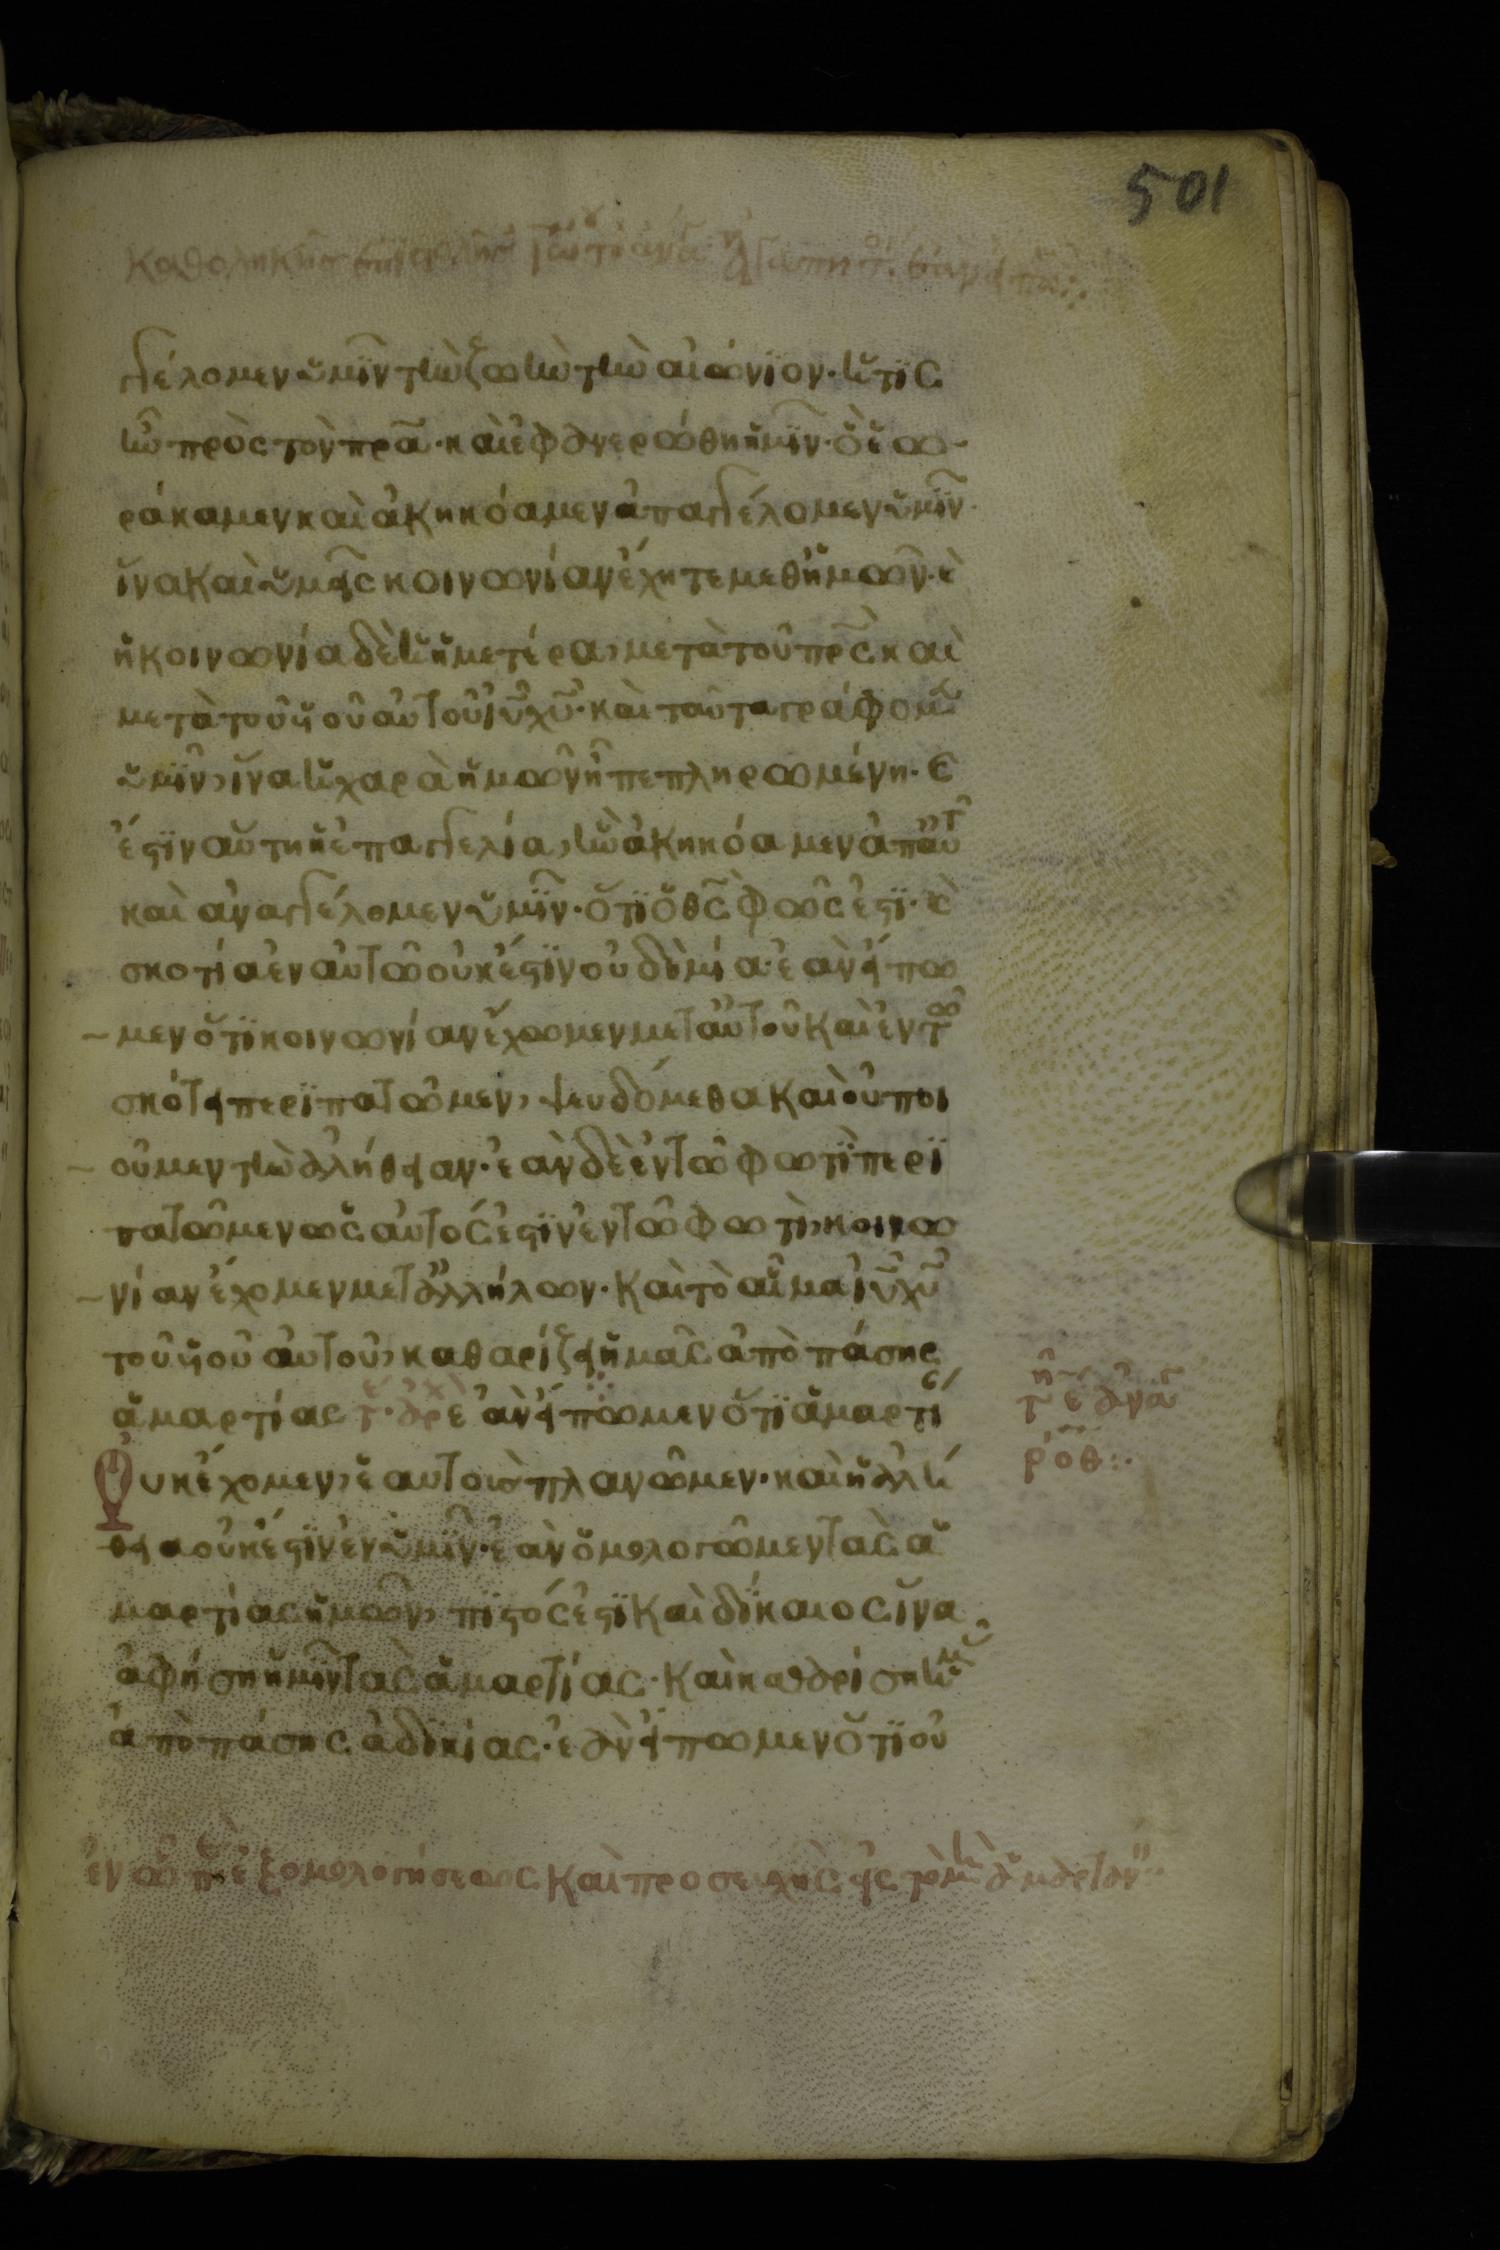 501
γέλομεν ὑμῖν τὴν ζωὴν τὴν αἰώνϊον· ἥτϊς
ἦν πρὸς τὸν πρ̅α̅· καὶ ἐφανερώθη ἡμῖν· ὃ ἑω
ράκαμεν καὶ ἀκηκόαμεν ἀπαγγέλομεν ὑμῖν
ἵνα καὶ ὑμεῖς κοινωνίαν ἔχητε μεθ ἡμῶν· κὶ
ἡ κοινωνία δὲ ἡ ἡμετέρα, μετὰ τοῦ πρ̅ς̅ καὶ
μετὰ τοῦ υἱοῦ αὐτοῦ ἰ̅υ̅ χ̅υ̅· καὶ ταῦτα γράφομεν
ὑμῖν, ἵνα ἡ χαρὰ ἡμῶν ἦ πεπληρωμένη· κ
ἔςϊν αὕτη ἡ ἐπαγγελία, ἣν ἀκηκόαμεν ἀπ αὐτοῦ
καὶ αναγγέλομεν ὑμῖν· ὅτϊ ὁ θ̅ς̅ φῶς ἐςϊ· κὶ
σκοτία εν αὐτῶ οὐκ ἔςϊν οὐδεμία· ἐὰν εἴπω
μεν ὅτϊ κοινωνίαν ἔχωμεν μετ αὐτοῦ καὶ ἐν τῶ
σκότει περϊπατῶμεν, ψευδόμεθα καὶ οὐ ποι
οῦμεν τὴν ἀλήθειαν· ἐὰν δὲ ἐν τῶ φωτὶ περϊ
πατῶμεν ὡς αὐτός ἐςϊν ἐν τῶ φωτὶ, κοινω
νίαν ἔχομεν μετ ἀλλήλων· καὶ τὸ αἷμα ἰ̅υ̅ χ̅υ̅
τοῦ υἱοῦ αὐτοῦ, καθαρίζει ἡμᾶς ἀπὸ πάσης
ἁμαρτίας ἐὰν εἴπωμεν ὅτϊ ἁμαρτί
Οὐκ ἔχομεν, ἑαυτοὺς πλανῶμεν· καὶ ἡ ἀλή
θεια οὐκ ἔςϊν ἐν ὑμῖν· ἐὰν ὁμολογῶμεν τὰς ἁ
μαρτίας ἡμῶν, πϊςός ἐςϊ καὶ δίκαιος ἵνα
ἀφήση ἡμῖν τὰς ἁμαρτίας· καὶ καθαρίση ἡμᾶς
ἀπὸ πάσης ἀδϊκίας· ἐὰν εἴπωμεν ὅτϊ οὐ
ἐν ὧ περὶ ἐξομολογήσεως καὶ προσευχῆς εἰς τὸ μὴ ἁμαρτάν